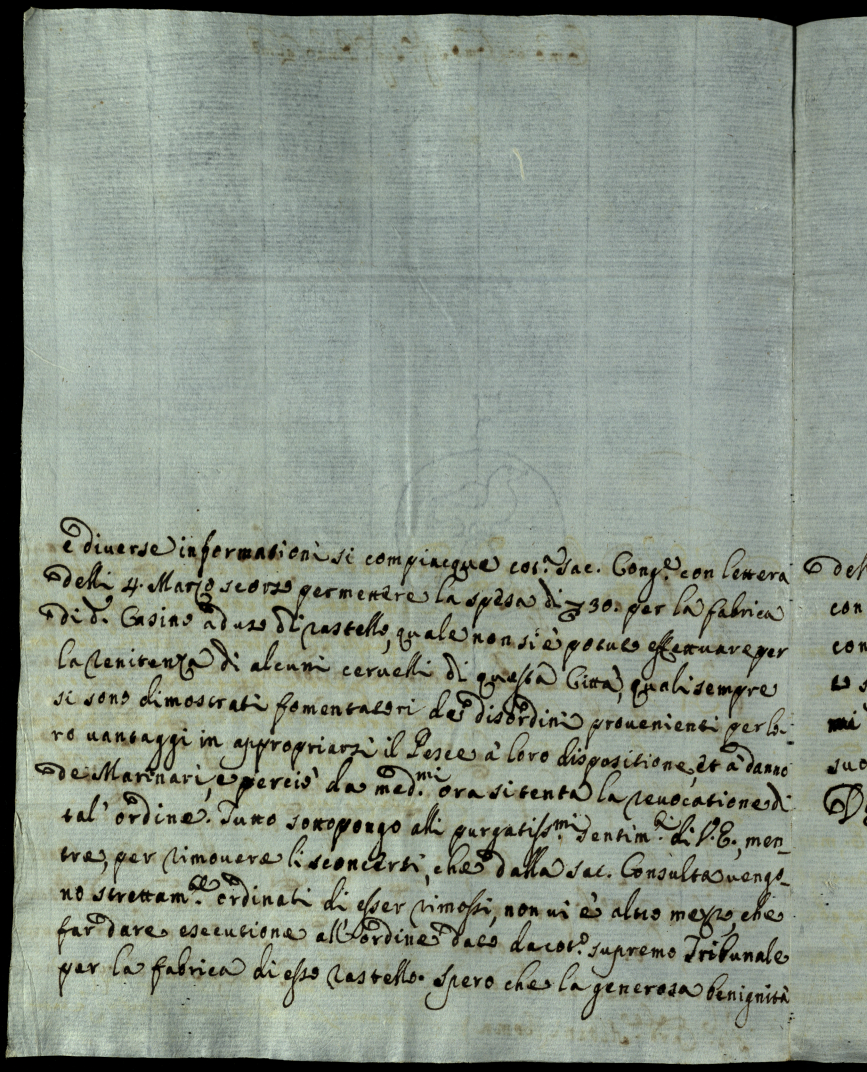 e diuerse informationi si compiacque cot.a Sac. Cong.e con lettera
delli 4. Marzo scorso permettere la spesa di 30. per la fabrica
di d.o Casino ad uso di rastello, quale non si è potuto effettuare per
la renitenza di alcuni ceruelli di questa Città, quali sempre
si sono dimostrati fomentatori de disordini provenienti per lo-
ro vantaggi in appropriarsi il Pesce à loro dispositione, et à danno
de Marinari, e perciò da med.mi ora si tenta la reuocatione di
tal' ordine. Tutto sottopongo alli purgatiss.mi sentim.ti di V. E., men-
tre, per rimouere li sconcerti, che dalla Sac. Consulta uengo-
no strettam.te ordinati di esser rimossi, non ui è altro mezzo, che
far dare esecutione all'ordine dato da cot.o supremo Tribunale
per la fabrica di esso rastello. Spero che la generosa benignità
del
con
con
to s
mi
suo